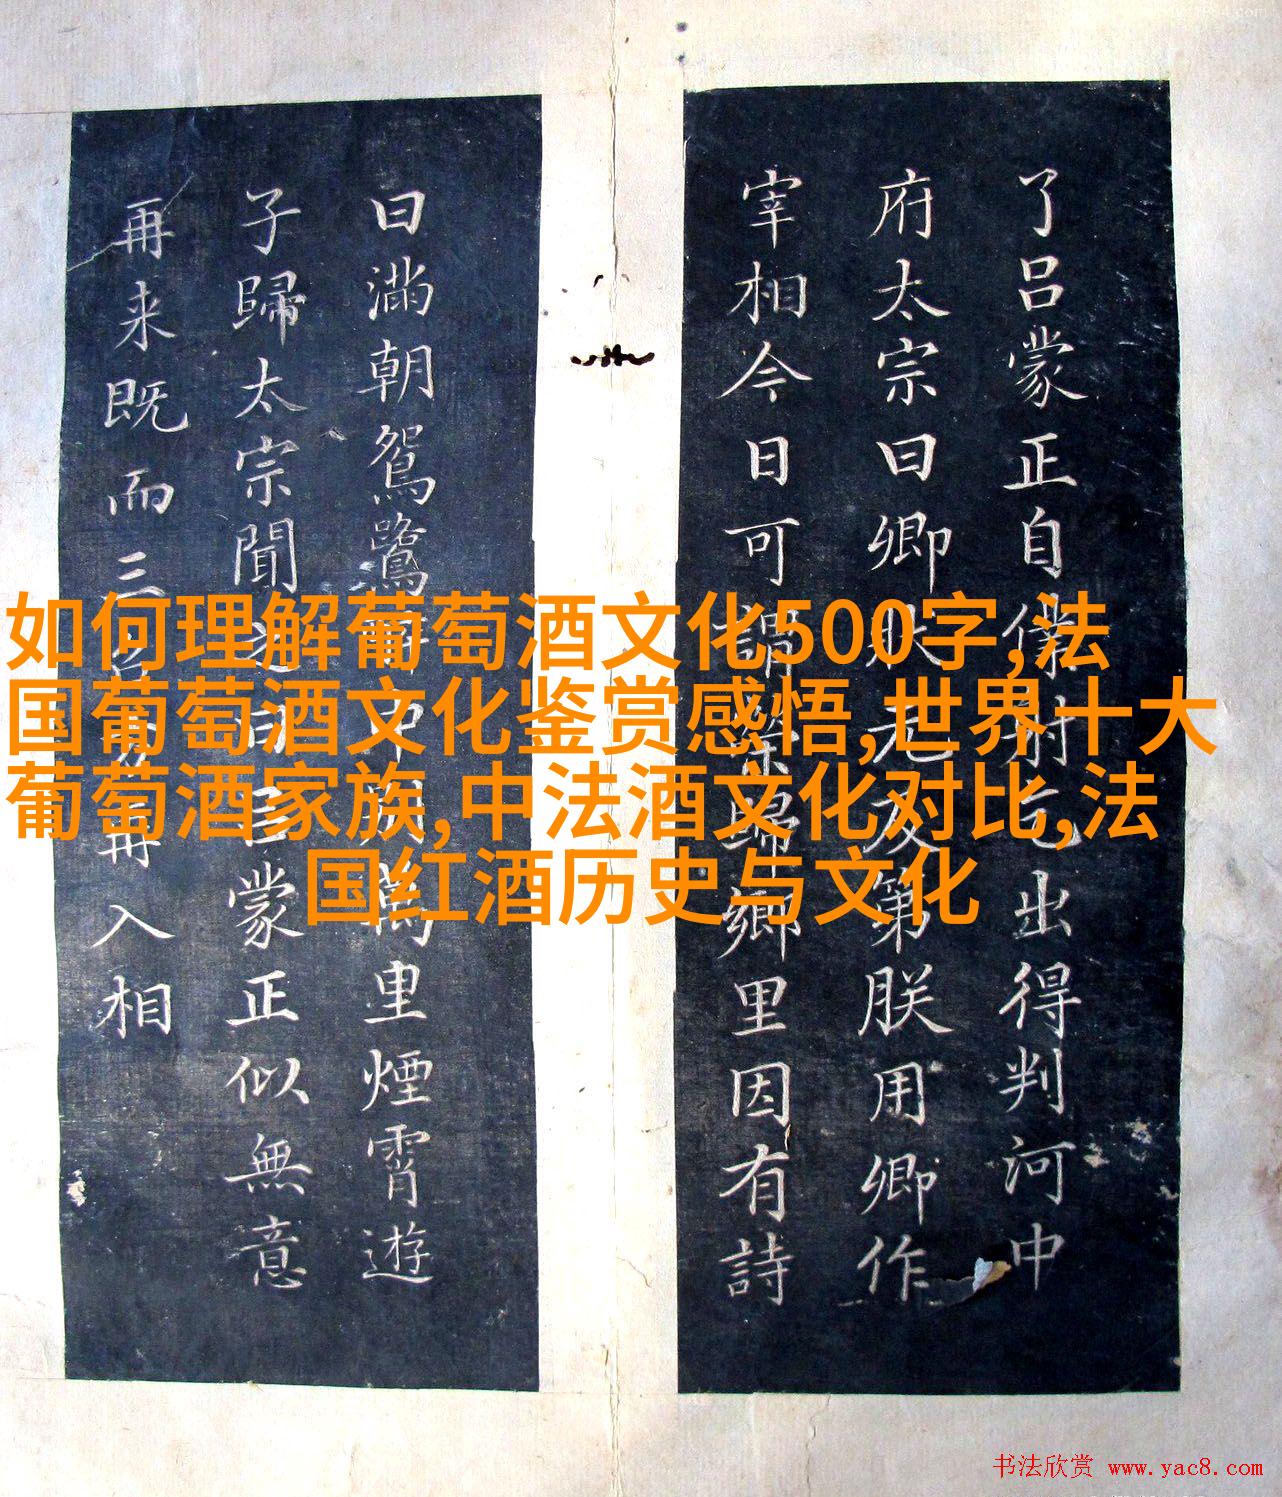 如何理解葡萄酒文化500字,法
国葡萄酒文化鉴赏感悟,世界十大
葡萄酒家族,中法酒文化对比,法
国红酒历史与文化
了吕蒙正自僕射乞出得判河中
府太宗曰卿状元及第朕用卿作
宰相今日可謂榮歸鄉里因有詩
曰滿朝鴛鷺
里煙霄遊
子歸太宗聞
蒙正似無意
再来既而三
再入相
书法欣赏 www.yac8.com